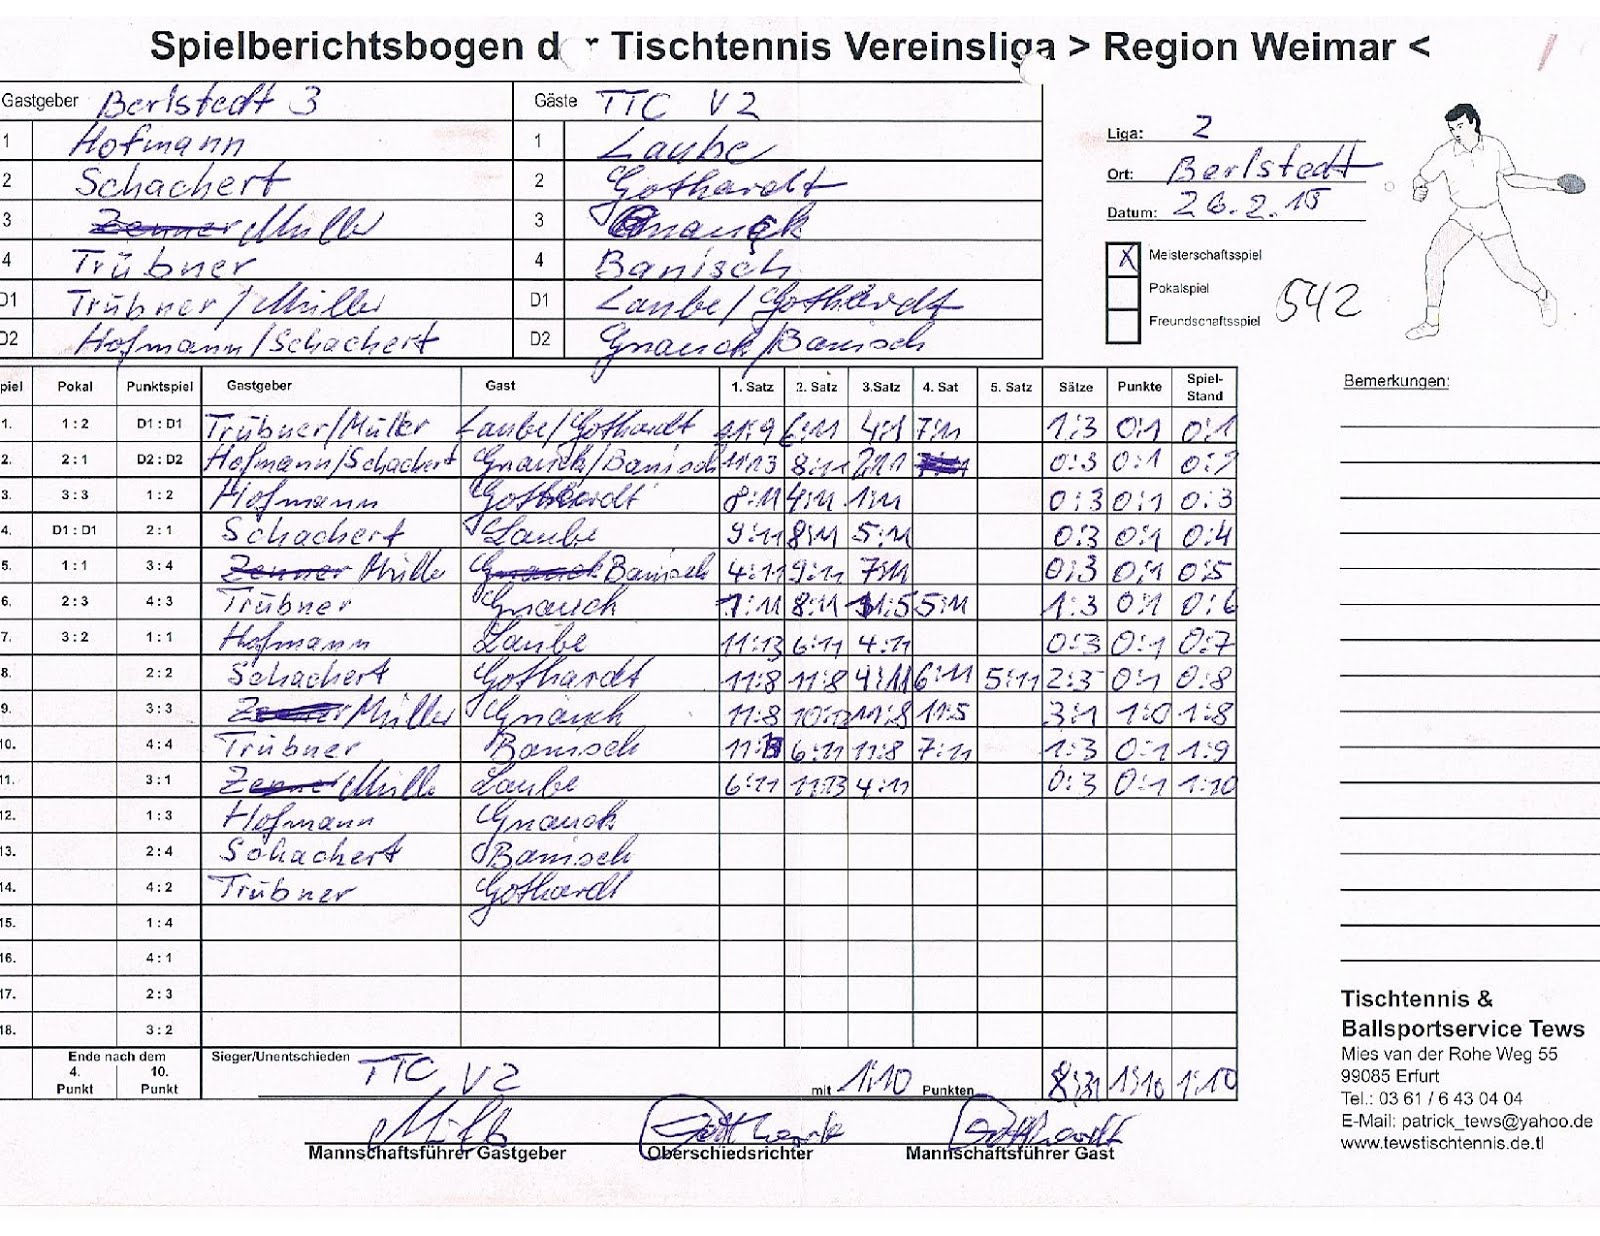 Spielberichtsbogen d r Tischtennis Vereinsliga > Region Weimar <
Gastgeber Berlstedt 3 Gäste TTC V2
1 Hofmann 1 Laube
2 Schachert 2 Gothardt
3 Zenner Müller 3 Gnauck
4 Trübner 4 Banisch
D1 Trübner/Müller D1 Laube/Gothardt
D2 Hofmann/Schachert D2 Gnauck/Banisch
Liga: 2
Ort: Berlstedt
Datum: 26.2.15
X Meisterschaftsspiel
Pokalspiel
Freundschaftsspiel
542
piel Pokal Punktspiel Gastgeber Gast 1. Satz 2. Satz 3.Satz 4. Sat 5. Satz Sätze Punkte Spiel-Stand
1. 1 : 2 D1 : D1 Trübner/Müller Laube/Gothardt 11:9 6:11 4:11 7:11 1:3 0:1 0:1
2. 2 : 1 D2 : D2 Hofmann/Schachert Gnauck/Banisch 11:13 8:11 2:11 0:3 0:1 0:2
3. 3 : 3 1 : 2 Hofmann Gothardt 8:11 4:11 1:11 0:3 0:1 0:3
4. D1 : D1 2 : 1 Schachert Laube 9:11 8:11 5:11 0:3 0:1 0:4
5. 1 : 1 3 : 4 Zenner Müller Gnauck Banisch 4:11 9:11 7:11 0:3 0:1 0:5
6. 2 : 3 4 : 3 Trübner Gnauck 7:11 8:11 11:5 5:11 1:3 0:1 0:6
7. 3 : 2 1 : 1 Hofmann Laube 11:13 6:11 4:11 0:3 0:1 0:7
8. 2 : 2 Schachert Gothardt 11:8 11:8 4:11 6:11 5:11 2:3 0:1 0:8
9. 3 : 3 Zenner/Müller Gnauck 11:8 10:12 11:8 11:5 3:1 1:0 1:8
10. 4 : 4 Trübner Banisch 6:11 11:8 7:11 1:3 0:1 1:9
11. 3 : 1 Zenner Müller Laube 6:11 11:13 4:11 0:3 0:1 1:10
12. 1 : 3 Hofmann Gnauck
13. 2 : 4 Schachert Banisch
14. 4 : 2 Trübner Gothardt
15. 1 : 4
16. 4 : 1
17. 2 : 3
18. 3 : 2
Ende nach dem
4. 10.
Punkt Punkt
Sieger/Unentschieden TTC V2 mit 1:10 Punkten 8:31 1:10 1:10
Müller Gothardt Gothardt
Mannschaftsführer Gastgeber Oberschiedsrichter Mannschaftsführer Gast
Bemerkungen:
Tischtennis &
Ballsportservice Tews
Mies van der Rohe Weg 55
99085 Erfurt
Tel.: 03 61 / 6 43 04 04
E-Mail: patrick_tews@yahoo.de
www.tewstischtennis.de.tl